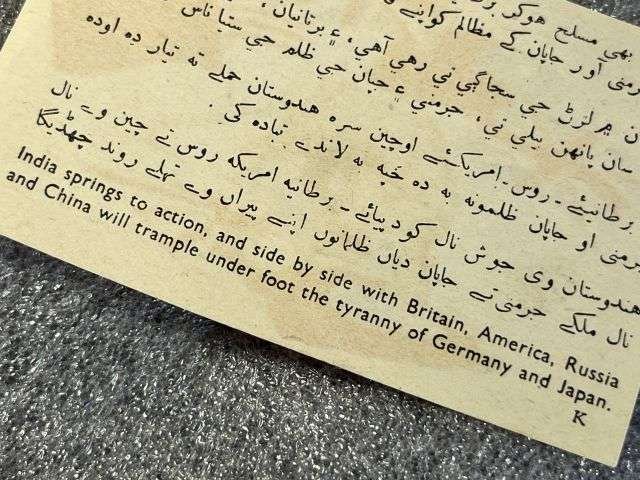 بھی مسلح ہوکر
جرمنی اور جاپان کے مظالم کو اپنے
جي سڄاڳي ٿي رهي آهي، ۽ برتانيا،
سان پانهن ٻيلي ٿي، جرمني ۽ جپان جي ظلم جي ستيا ناس
برطانیئے - روس - امریکئے اوچین سره هندوستان حملے ته تیار دہ اوده
جرمنی او جاپان ظلمونه به ده خپه به لاندے تباده کی.
هندوستان وی جوش نال کود پیائے - برطانیه امریکه روس تے چین وے نال
نال ملکے جرمنی تے جاپان دیاں ظلمانوں اپنے پیراں وے تھلے روند چھڈیگا
India springs to action, and side by side with Britain, America, Russia
and China will trample under foot the tyranny of Germany and Japan.
K